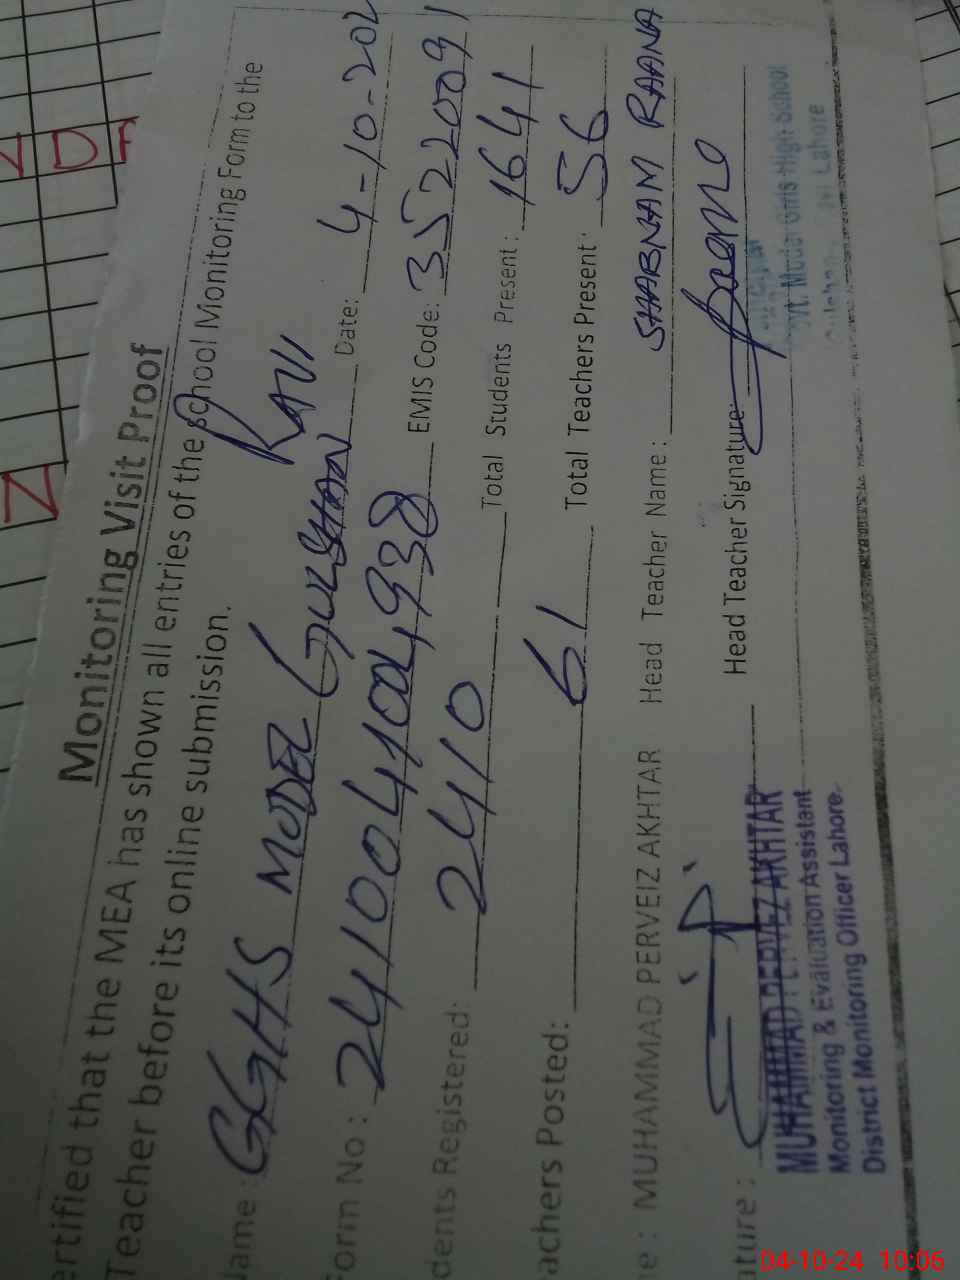 Monitoring Visit Proof
ertified that the MEA has shown all entries of the school Monitoring Form to the
Teacher before its online submission.
Name: GGHS MODEL GULSHAN RAVI Date: 4-10-202
Form No: 2410041004938 EMIS Code: 35220091
dents Registered: 2410 Total Students Present: 1641
achers Posted: 61 Total Teachers Present: 56
e: MUHAMMAD PERVEIZ AKHTAR Head Teacher Name: SHABNAM RAANA
ature: Head Teacher Signature:
MUHAMMAD PERVEZ AKHTAR
Monitoring & Evaluation Assistant
District Monitoring Officer Lahore
Govt. Model Girls High School
Lahore
04-10-24 10:06